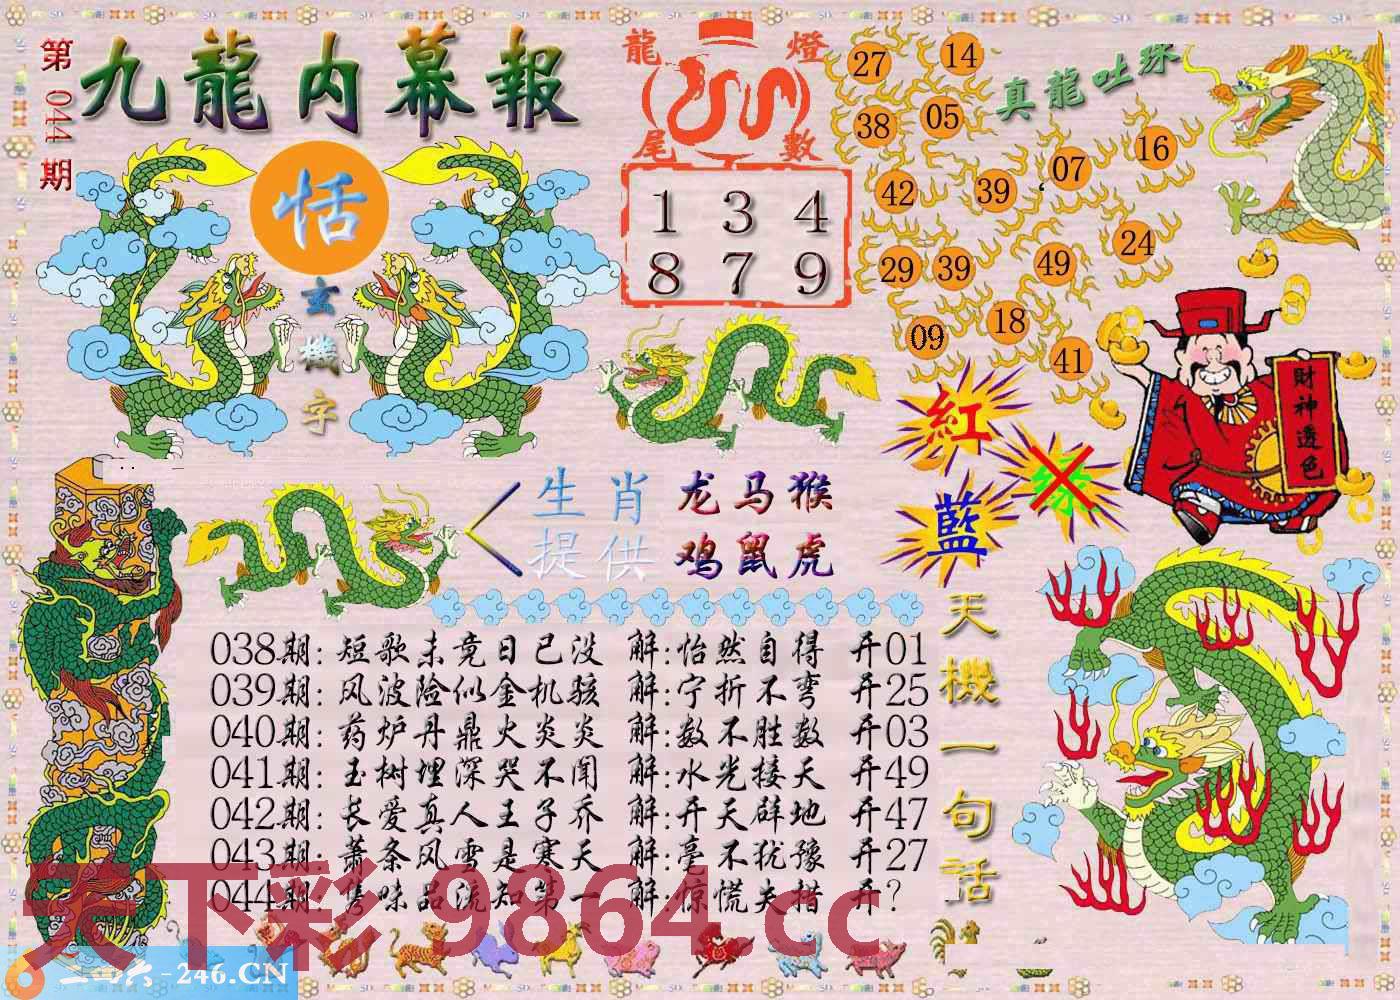 第044期
九龍内幕報
恬
玄機字
龍燈尾數
1 3 4
8 7 9
27 14
38 05
42 39 07 16
29 39 49 24
09 18 41
真龍吐珠
財神透色
紅
绿
藍
生肖 龙马猴
提供 鸡鼠虎
天機一句話
038期: 短歌未竞日已没 解:怡然自得 开01
039期: 风波险似金机骇 解:宁折不弯 开25
040期: 药炉丹鼎火炎炎 解:数不胜数 开03
041期: 玉树埋深哭不闻 解:水光接天 开49
042期: 长爱真人王子乔 解:开天辟地 开47
043期: 萧条风雪是寒天 解:毫不犹豫 开27
044期: 隽味品流知第一 解:惊慌失措 开?
天下彩 9864.cc
二四六-246.CN